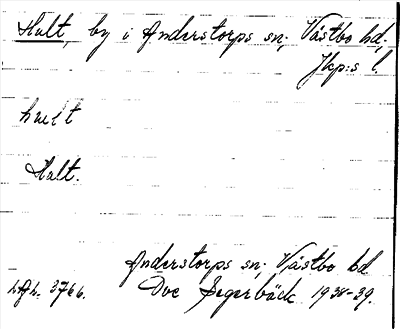 Hult, by i Anderstorps sn; Västbo hd;
Jkp:s l.
hult
Hult.
Anderstorps sn; Västbo hd
3766. Ove Segerbäck 1938-39.